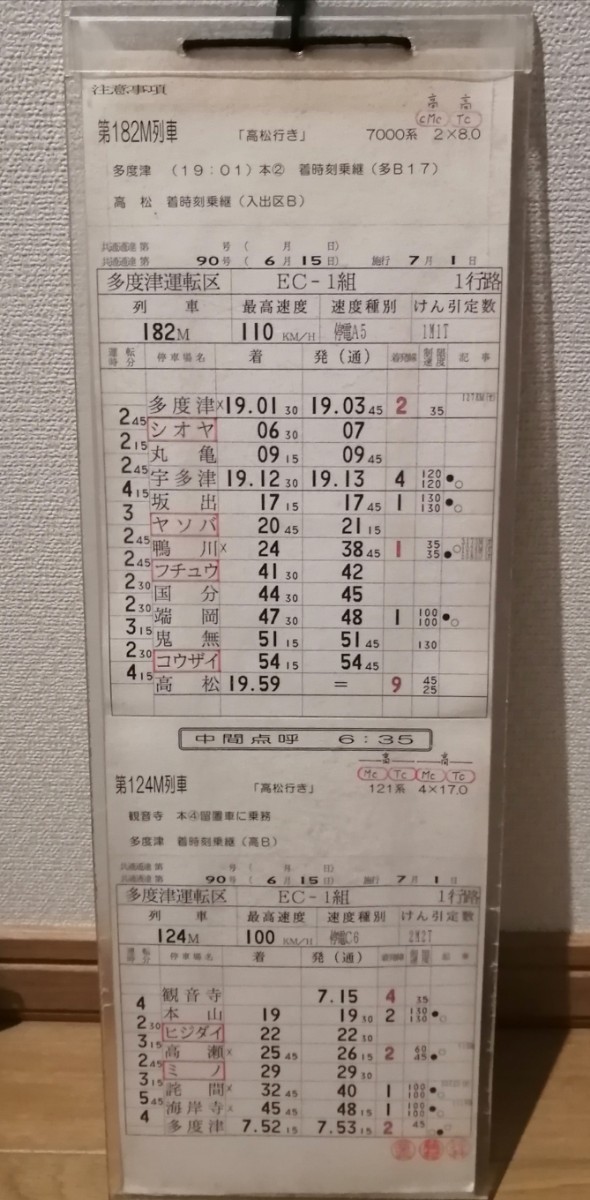 注意事項
高 高
cMc Tc
第182M列車 「高松行き」 7000系 2×8.0
多度津 (19:01)本② 着時刻乗継(多B17)
高 松 着時刻乗継(入出区B)
共通通達 第 号 ( 月 日)
共通通達 第 90号 ( 6月 15日) 施行 7月 1日
多度津運転区 EC-1組 1行路
列 車 最高速度 速度種別 けん引定数
182M 110 KM/H 停電A5 1M1T
運転時分 停車場名 着 発(通) 着発線 制限速度 記事
多度津× 19.01 30 19.03 45 2 35
2 45
シオヤ 06 30 07
2 15
丸亀 09 15 09 45
2 45
宇多津 19.12 30 19.13 4 120 120
4 15
坂出 17 15 17 45 1 130 130
3
ヤソバ 20 45 21 15
2 45
鴨川× 24 38 45 1 35 35
2 45
フチュウ 41 30 42
2 30
国分 44 30 45
2 30
端岡 47 30 48 1 100 100
3 15
鬼無 51 15 51 45 130
2 30
コウザイ 54 15 54 45
4 15
高松 19.59 = 9 45 25
中間点呼 6:35
高 高
Mc Tc Mc Tc
第124M列車 「高松行き」 121系 4×17.0
観音寺 本④留置車に乗務
多度津 着時刻乗継(高B)
共通通達 第 号 ( 月 日)
共通通達 第 90号 ( 6月 15日) 施行 7月 1日
多度津運転区 EC-1組 1行路
列 車 最高速度 速度種別 けん引定数
124M 100 KM/H 停電C6 2M2T
運転時分 停車場名 着 発(通) 着発線 制限速度 記事
観音寺 7.15 4 35
4
本山 19 19 30 2 130 130
2 30
ヒジダイ 22 22 30
3 15
高瀬× 25 45 26 15 2 60 45
2 45
ミノ 29 29 30
3 15
詫間× 32 45 40 1 100 100
5 45
海岸寺× 45 45 48 15 1 100 100
4
多度津 7.52 15 7.53 15 2 45